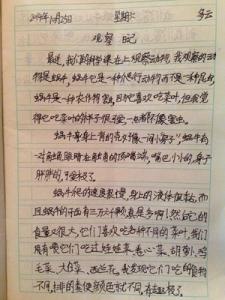 2014年10月25日 星期六 多云
观察日记
最近,我们的科学课在上观察动物,我观察的动
物是蜗牛,蜗牛它是一种爬行动物而不是一种昆虫,
蜗牛是一种农作物害虫,因为它喜欢吃菜叶,但我觉
得它吃菜叶的样子很可爱,一点都不像害虫。
蜗牛身上有的壳好像一间小房子,蜗牛有
一对触角,眼睛在触角的顶端,嘴巴小小的,身子
胖胖的,可爱极了。
蜗牛爬的速度很慢,身上的液体很粘,而
且蜗牛的牙齿有三万,真是多啊!然后它的
食量很大,它们喜欢吃各种不同的菜叶,我们
用有喂它们吃过娃娃菜、卷心菜、胡萝卜、鸡
毛菜、大白菜、西兰花,我发现它们吃的食物
不同,排的粪便颜色就不同,有趣极了。